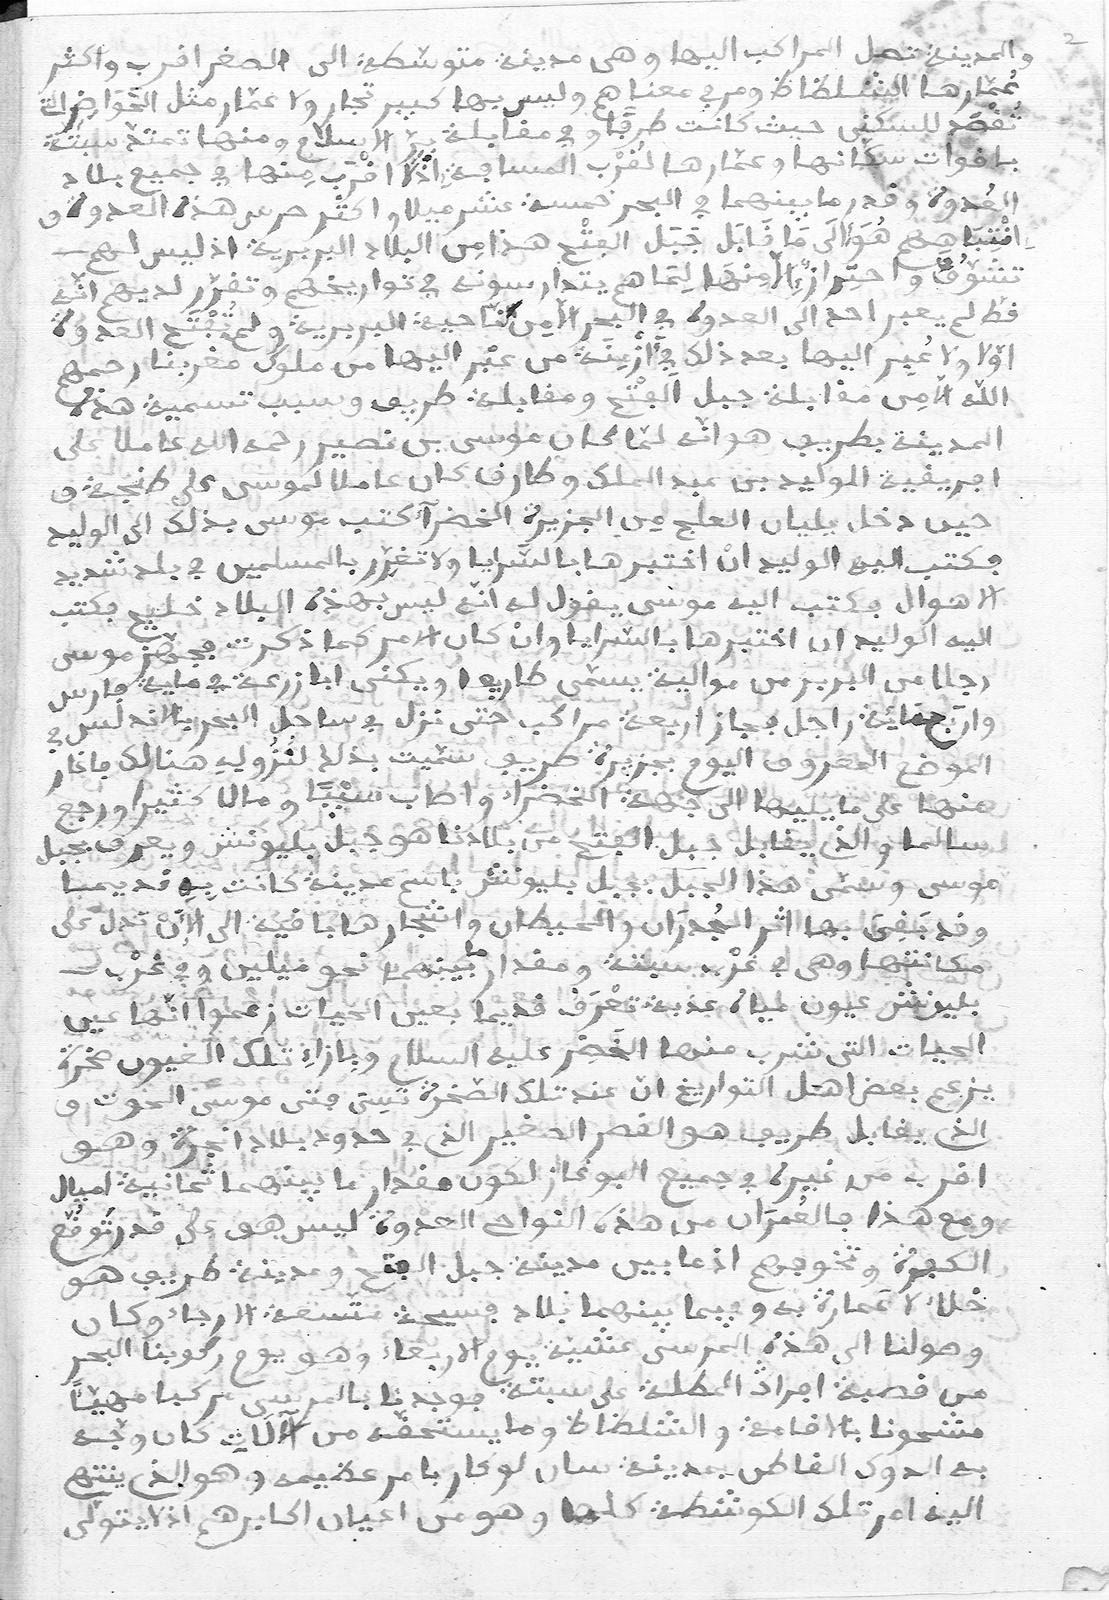 2
والمدينة تصل المراكب اليها وهى مدينة متوسطة الى الصغر اقرب واكثر
عُمّارها الشلظاظ ومن في معناهم وليس بها كبير تجار ولا عمّار مثل الحَوَاضِر التى
تُقْصَد للسكنى حيث كانت طرفًا وفي مقابلة برّ الاسلام ومنها تمتدّ سبتة
باقوات سكانها وعمّارها لقُرْب المسافة اذ لا اقْرَبَ مِنها في جميع بلاد
العُدوة وقدر ما بينهما في البحر خمسة عشر ميلا واكثر حرس هذه العدوة و
انْتِبَاههم هُوَ الَى مَا قَابَل جَبَل الفتْح هذا مِن البلاد البربرية اذ ليس لهم
تشَوّفٌ واحتِرازٌ الّا مِنهَا لِمَا هم يتدارسونه في تواريخهم وتقرّر لديهم انّه
قطّ لم يعبر احد الى العدوة في البحر الّا مِن ناحية البربرية ولم تُفْتَح العدوة
اوّلا ولا عُبِر اليها بعد ذلك في ازْمِنَة من عبَر اليها من ملوك مغربنا رحمهم
الله الّا مِن مقابلة جبل الفتْح ومقابلة طريف وسبب تسمية هذه
المدينة بطريف هو انّه لمّا كان موسى بن نصير رحمه الله عاملا على
افريقية للوليد بن عبد الملك وطارق كان عاملا لموسى على طنجة و
حين دخل يليان العلج مِن الجزيرة الخضرآ كتب موسى بذلك الى الوليد
فكتب اليه الوليد انْ اختبرها بالسّرايا ولا تغرّر بالمسلمين في بلد شديد
الاهوال فكتب اليه موسى يقول له انّه ليس بهذه البلاد خليج فكتب
اليه الوليد ان اختبرها بالسّرايا وانْ كان الامر كما ذكرت فجهّز موسى
رجلا من البربر من مواليه يسمّى طاريفا ويكنى ابا زرعة في ماية فارس
واربَع مائة راجل فجاز اربعة مراكب حتى نزل في ساحل البحر بالاندلس في
الموضع المعروف اليوم بجزيرة طريف سمّيت بذلك لنُزُوله هنالك فاغار
منها على ما يليها الى جهة الخضرآء واصاب سَبْيًا ومالا كثيرا ورجع
سالما والذي يقابل جبل الفتح من بلادنا هو جبل بليونش ويعرف بجبل
موسى وسمّى هذا الجبل بجبل بليونش باسم مدينة كانت بِهِ قديما
وقد بَقِىَ بها اثر الجُدرَان والحيطان واشجارها باقية الى الآن تدلّ على
مكانتها وهى في غَرْب سبتة ومقدار ما بينهما نحو ميلين وفي غرْب
بليونش عيون لمياه عذبة تعْرَف قديما بعين الحيات زعموا انّها عين
الحيات التى شرب منها الخَضِر عليه السلام وبازاءِ تلك العُيون صخرة
يزعم بعض اهل التواريخ انّ عند تلك الصّخرة نَسِىَ فتى موسَى الحوت و
الذي يقابل طريف هو القصر الصغير الذي في حدود بلاد انجرة وهو
اقرب من غيره في جميع البوغاز لكون مقدار ما بينهما ثمانية اميال
ومع هذا فالعُمرَان من هذه النواحى العدوة ليس هو على قدر تَوقّع
الكفرة وتخوفهم اذ ما بين مدينة جبل الفتح ومدينة طريف هو
خلاء لا عَمارة به وفيما بينهما بلاد فسيحة متّسعة الارجاء وكان
وصولنا الى هذه المرسى عشيّة يوم الاربعاء وهو يوم ركوبنا البحر
من قصبة افراݣ المطلة على سبتة فوجدنا بالمرسى مركبا مهيّأً
مشحونا بالاقامة والشلظاظ وما يستحقّه من الآلَاتِ كان وجّه
به الدوك القاطن بمدينة سان لوكار بامر عظيمه وهو الذي ينتهى
اليه امر تلك الكوشطة كلها وهو من اعيان اكابرهم اذ لا يتولّى